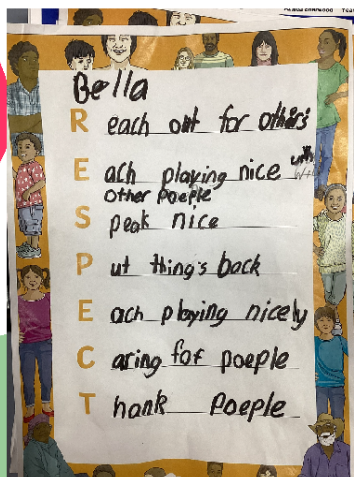 Bella
Reach out for others
Each playing nice with
other poeple
Speak nice
Put thing's back
Each playing nicely
Caring for poeple
Thank Poeple